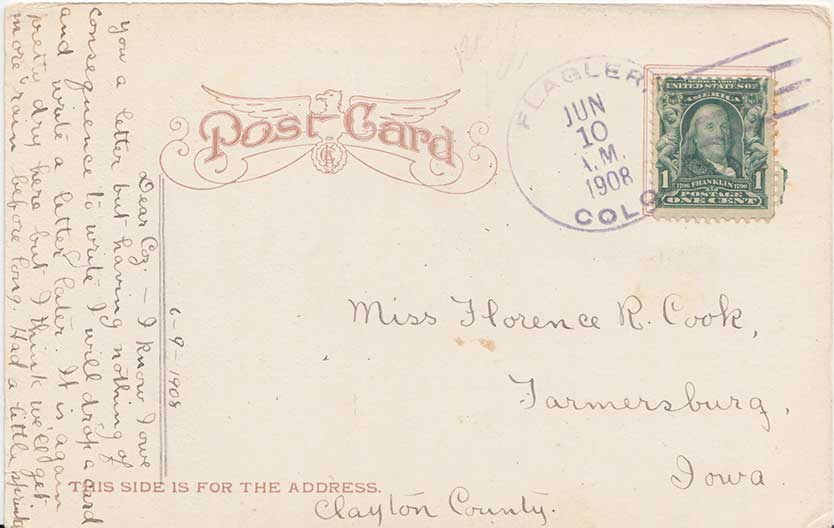 Post Card
FLAGLER
JUN
10
A.M.
1908
COLO
UNITED STATES OF
AMERICA
1
1
1706 FRANKLIN 1790
POSTAGE
ONE CENT
6-9-1908
Dear Coz. - I know I owe
you a letter but having nothing of
consequence to write I will drop a card
and write a letter later. It is again
pretty dry here but I think we'll get
more rain before long. Had a little
Miss Florence R. Cook,
Farmersburg,
Iowa.
Clayton County.
THIS SIDE IS FOR THE ADDRESS.